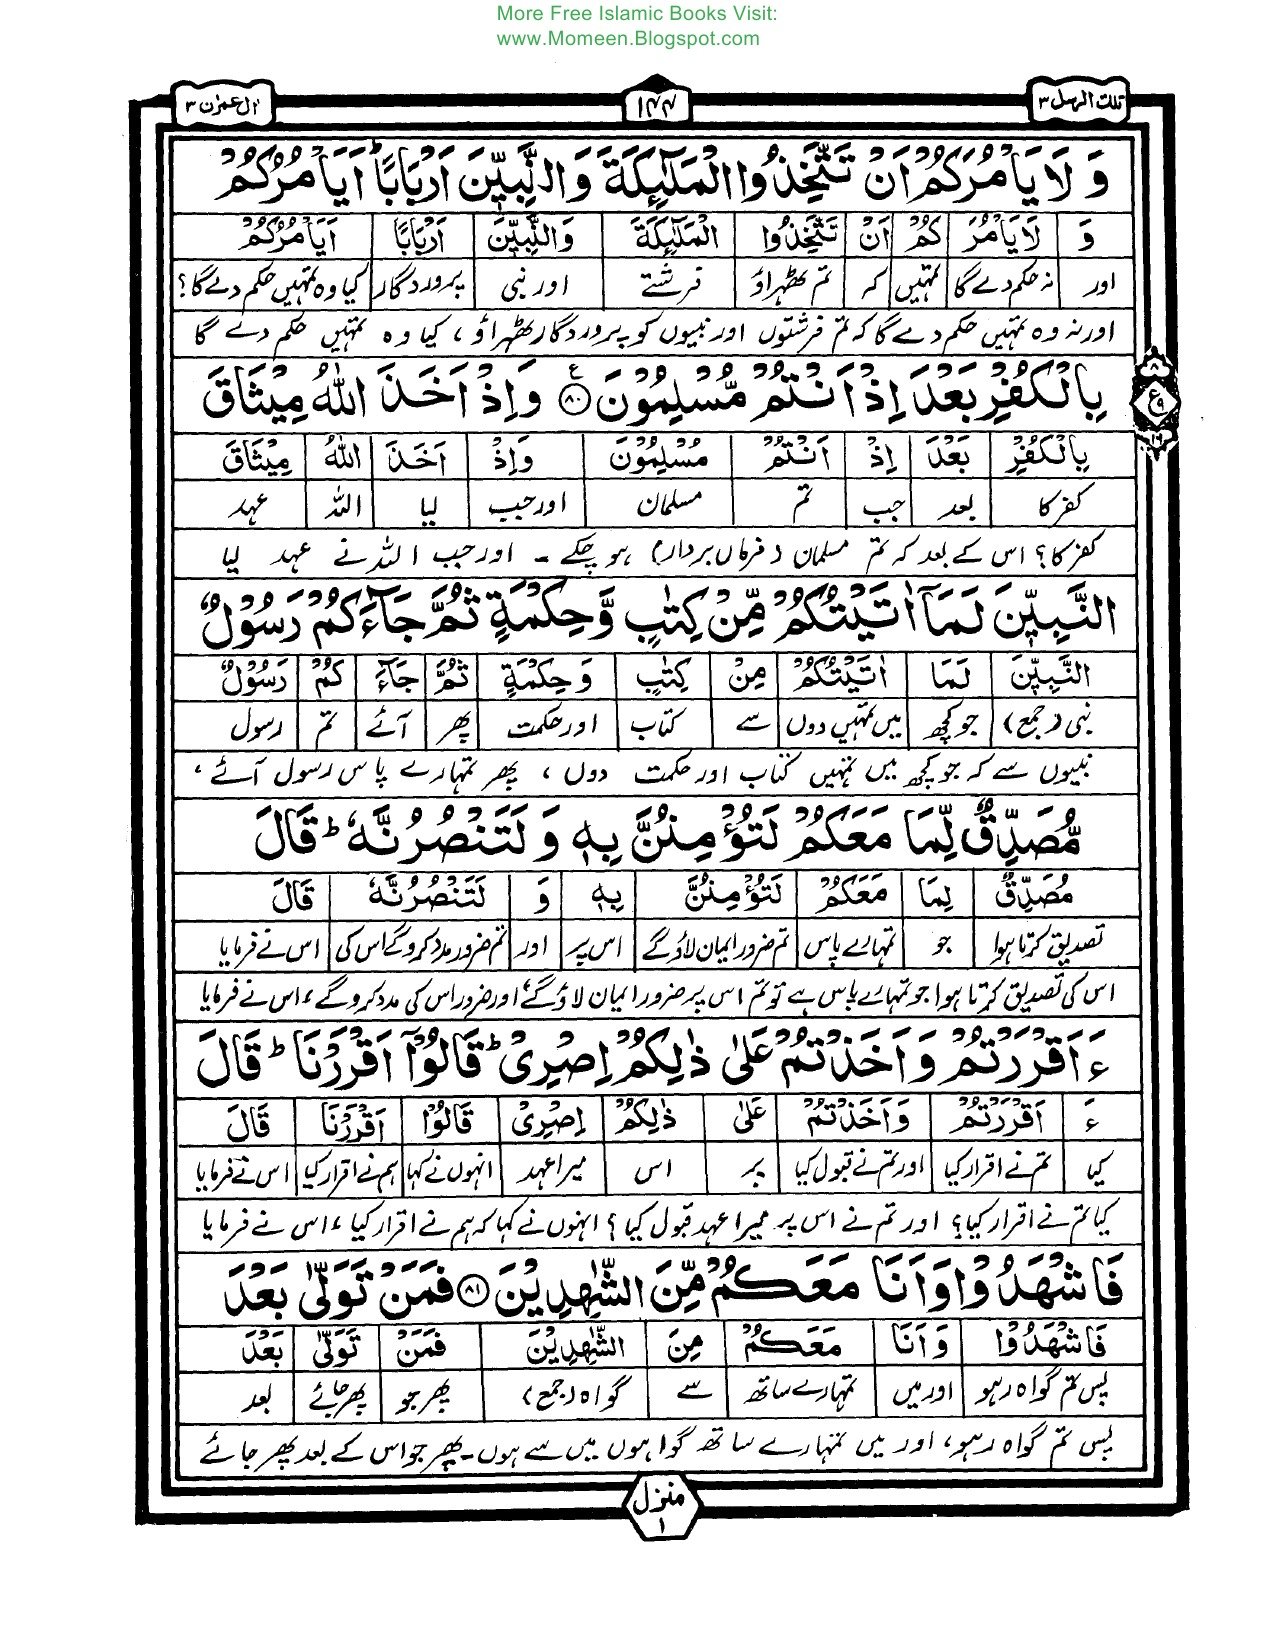 More Free Islamic Books Visit:
www.Momeen.Blogspot.com
تلك الرسل ٣
١٤٤
اٰل عمرٰن ٣
وَ لَا يَاْمُرَكُمْ اَنْ تَتَّخِذُوا الْمَلٰٓئِكَةَ وَالنَّبِيّٖنَ اَرْبَابًا ؕ اَيَاْمُرُكُمْ
وَ لَا يَاْمُرَ كُمْ اَنْ تَتَّخِذُوا الْمَلٰٓئِكَةَ وَالنَّبِيّٖنَ اَرْبَابًا اَيَاْمُرُكُمْ
اور نہ حکم دے گا تمہیں کہ تم ٹھہراؤ فرشتے اور نبی پروردگار کیا وہ تمہیں حکم دے گا؟
اور نہ وہ تمہیں حکم دے گا کہ تم فرشتوں اور نبیوں کو پروردگار ٹھہراؤ ، کیا وہ تمہیں حکم دے گا
بِالْكُفْرِ بَعْدَ اِذْ اَنْتُمْ مُّسْلِمُوْنَ ۟ع ٨٠ وَاِذْ اَخَذَ اللّٰهُ مِيْثَاقَ
٨
ع ٩
١٦
بِالْكُفْرِ بَعْدَ اِذْ اَنْتُمْ مُسْلِمُوْنَ وَاِذْ اَخَذَ اللّٰهُ مِيْثَاقَ
کفر کا بعد جب تم مسلمان اور جب لیا اللہ عہد
کفر کا؟ اس کے بعد کہ تم مسلمان (فرماں بردار) ہو چکے ۔ اور جب اللہ نے عہد لیا
النَّبِيّٖنَ لَمَآ اٰتَيْتُكُمْ مِّنْ كِتٰبٍ وَّحِكْمَةٍ ثُمَّ جَآءَكُمْ رَسُوْلٌ
النَّبِيّٖنَ لَمَا اٰتَيْتُكُمْ مِنْ كِتٰبٍ وَحِكْمَةٍ ثُمَّ جَآءَ كُمْ رَسُوْلٌ
نبی (جمع) جو کچھ میں تمہیں دوں سے کتاب اور حکمت پھر آئے تم رسول
نبیوں سے کہ جو کچھ میں تمہیں کتاب اور حکمت دوں ، پھر تمہارے پاس رسول آئے ،
مُّصَدِّقٌ لِّمَا مَعَكُمْ لَتُؤْمِنُنَّ بِهٖ وَ لَتَنْصُرُنَّهٗ ؕ قَالَ
مُصَدِّقٌ لِمَا مَعَكُمْ لَتُؤْمِنُنَّ بِهٖ وَ لَتَنْصُرُنَّهٗ قَالَ
تصدیق کرتا ہوا جو تمہارے پاس تم ضرور ایمان لاؤ گے اس پر اور تم ضرور مدد کرو گے اس کی اس نے فرمایا
اس کی تصدیق کرتا ہوا جو تمہارے پاس ہے تو تم اس پر ضرور ایمان لاؤ گے اور ضرور اس کی مدد کرو گے ، اس نے فرمایا
ءَاَقْرَرْتُمْ وَاَخَذْتُمْ عَلٰى ذٰلِكُمْ اِصْرِيْ ؕ قَالُوْٓا اَقْرَرْنَا ؕ قَالَ
ءَ اَقْرَرْتُمْ وَاَخَذْتُمْ عَلٰى ذٰلِكُمْ اِصْرِيْ قَالُوْٓا اَقْرَرْنَا قَالَ
کیا تم نے اقرار کیا اور تم نے قبول کیا پر اس میرا عہد انہوں نے کہا ہم نے اقرار کیا اس نے فرمایا
کیا تم نے اقرار کیا؟ اور تم نے اس پر میرا عہد قبول کیا ؟ انہوں نے کہا کہ ہم نے اقرار کیا ، اس نے فرمایا
فَاشْهَدُوْا وَاَنَا مَعَكُمْ مِّنَ الشّٰهِدِيْنَ ٨١ فَمَنْ تَوَلّٰى بَعْدَ
فَاشْهَدُوْا وَاَنَا مَعَكُمْ مِنَ الشّٰهِدِيْنَ فَمَنْ تَوَلّٰى بَعْدَ
پس تم گواہ رہو اور میں تمہارے ساتھ سے گواہ (جمع) پھر جو پھر جائے بعد
پس تم گواہ رہو، اور میں تمہارے ساتھ گواہوں میں سے ہوں ۔ پھر جو اس کے بعد پھر جائے
منزل
١